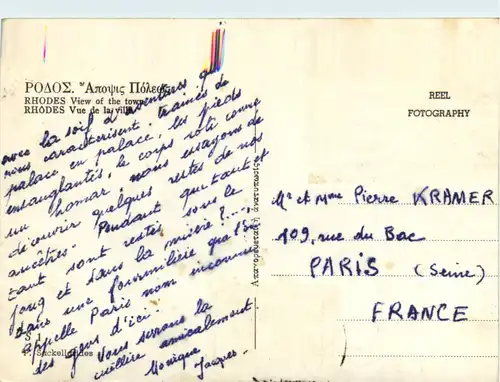 ΡΟΔΟΣ. Ἄποψις Πόλεως
RHODES View of the town
RHODES Vue de la ville
avec la soif d'aventures qui
nous caractérisent. Traînés de
palace en palace, les pieds
ensanglantés, le corps rôti comme
un homar, nous essayons de
découvrir quelques restes de nos
ancêtres. Pendant que tant et
tant sont restés sous le
joug et dans la misère?...,
dans une fourmilière que l'on
appelle Paris nom inconnu
des gens d'ici.
Vous serrons la
cuillère amicalement
Monique
Jacques
Ἀπαγορεύεται ἡ ἀνατύπωσις
REEL
FOTOGRAPHY
Mr et Mme Pierre KRAMER
109, rue du Bac
PARIS (Seine)
FRANCE